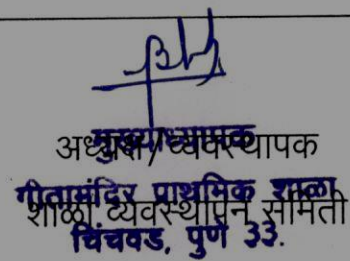 मुख्याध्यापक
अध्यक्ष / व्यवस्थापक
गीतामंदिर प्राथमिक शाळा
शाळा व्यवस्थापन समिती
चिंचवड, पुणे ३३.